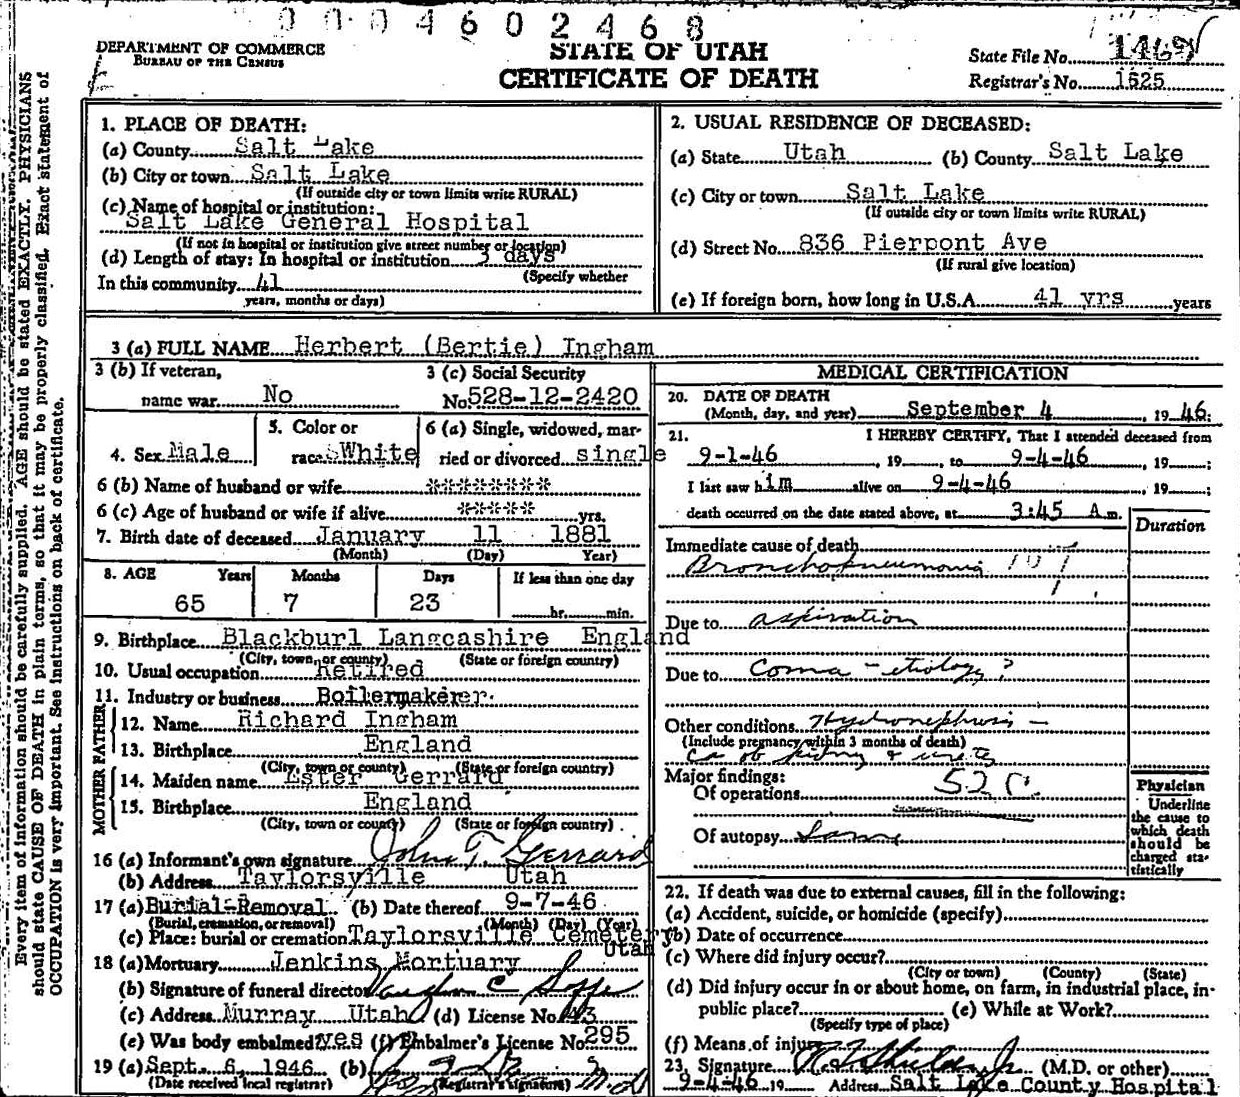 0004602468
DEPARTMENT OF COMMERCE
BUREAU OF THE CENSUS
STATE OF UTAH
CERTIFICATE OF DEATH
State File No. 1469
Registrar's No. 1625
Every item of information should be carefully supplied. AGE should be stated EXACTLY. PHYSICIANS
should state CAUSE OF DEATH in plain terms, so that it may be properly classified. Exact statement of
OCCUPATION is very important. See instructions on back of certificate.
1. PLACE OF DEATH:
(a) County Salt Lake
(b) City or town Salt Lake
(If outside city or town limits write RURAL)
(c) Name of hospital or institution:
Salt Lake General Hospital
(If not in hospital or institution give street number or location)
(d) Length of stay: In hospital or institution 3 days
(Specify whether
In this community 41
years, months or days)
2. USUAL RESIDENCE OF DECEASED:
(a) State Utah (b) County Salt Lake
(c) City or town Salt Lake
(If outside city or town limits write RURAL)
(d) Street No. 836 Pierpont Ave
(If rural give location)
(e) If foreign born, how long in U.S.A. 41 yrs years
3 (a) FULL NAME Herbert (Bertie) Ingham
3 (b) If veteran,
name war No
3 (c) Social Security
No. 528-12-2420
4. Sex Male
5. Color or
race White
6 (a) Single, widowed, mar-
ried or divorced single
6 (b) Name of husband or wife *********
6 (c) Age of husband or wife if alive ****** yrs.
7. Birth date of deceased January 11 1881
(Month) (Day) Year)
8. AGE Years Months Days If less than one day
65 7 23 hr. min.
9. Birthplace Blackburl Langcashire England
(City, town, or county) (State or foreign country)
10. Usual occupation Retired
11. Industry or business Boilermakerer.
FATHER
12. Name Richard Ingham
13. Birthplace England
(City, town or county) (State or foreign country)
MOTHER
14. Maiden name Ester Gerrard
15. Birthplace England
(City, town or county) (State or foreign country)
16 (a) Informant's own signature John T. Gerrard
(b) Address Taylorsville Utah
17 (a) Burial-Removal (b) Date thereof 9-7-46
(Burial, cremation, or removal) (Month) (Day) (Year)
(c) Place: burial or cremation Taylorsville Cemetery
Utah
18 (a) Mortuary Jenkins Mortuary
(b) Signature of funeral director Vaughn C
(c) Address Murray Utah (d) License No. 43
(e) Was body embalmed? yes (f) Embalmer's License No. 295
19 (a) Sept. 6, 1946 (b)
(Date received local registrar) (Registrar's signature)
MEDICAL CERTIFICATION
20. DATE OF DEATH
(Month, day, and year) September 4, 1946:
21. I HEREBY CERTIFY, That I attended deceased from
9-1-46, 19, to 9-4-46, 19;
I last saw him alive on 9-4-46, 19;
death occurred on the date stated above, at 3:45 A.m.
Duration
Immediate cause of death
Bronchopneumonia 107
Due to aspiration
Due to Coma - etiology?
Other conditions Hydronephrosis -
(Include pregnancy within 3 months of death)
Ca of kidney & ureter
Major findings:
Of operations 52
Of autopsy Same
Physician
Underline
the cause to
which death
should be
charged sta-
tistically
22. If death was due to external causes, fill in the following:
(a) Accident, suicide, or homicide (specify)
(b) Date of occurrence
(c) Where did injury occur?
(City or town) (County) (State)
(d) Did injury occur in or about home, on farm, in industrial place, in-
public place? (e) While at Work?
(Specify type of place)
(f) Means of injury
23. Signature Jr. (M.D. or other)
9-4-46 19 Address Salt Lake County Hospital